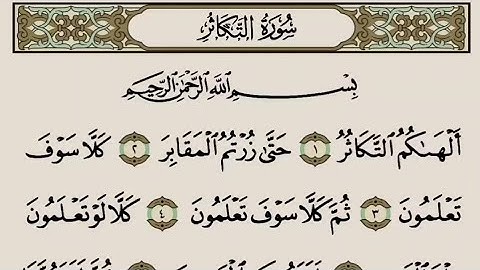 سُورَةُ التَّكَاثُرِ
بِسْمِ ٱللَّهِ ٱلرَّحْمَٰنِ ٱلرَّحِيمِ
أَلْهَىٰكُمُ ٱلتَّكَاثُرُ ١ حَتَّىٰ زُرْتُمُ ٱلْمَقَابِرَ ٢ كَلَّا سَوْفَ
تَعْلَمُونَ ٣ ثُمَّ كَلَّا سَوْفَ تَعْلَمُونَ ٤ كَلَّا لَوْ تَعْلَمُونَ